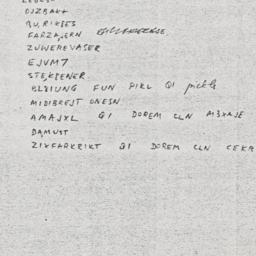 OJZBAKT
BU, RIKSES
FARZAJERN
ZUWEREVASER
EJVM7
STEKDENER
BLBIUNG FUN PIKL QI pickle
MIDIBREJT ONESN
AMAJXL QI DOREM CLN M3XAJE
DAMUST
ZIXFARKRIKT QI DOREM CLN CEKA